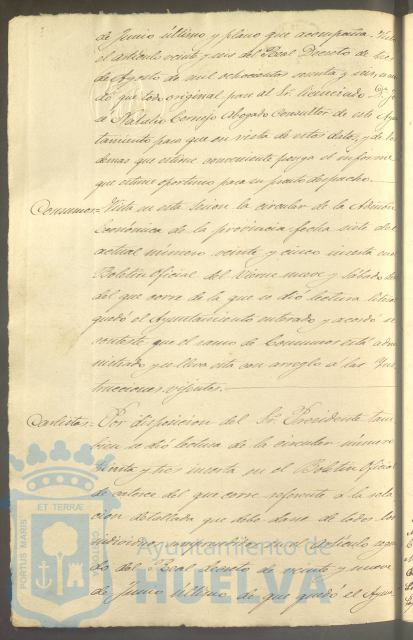 de Junio último y plano que acompaña. Visto
el artículo veinte y seis del Real Decreto de
de Agosto de mil ochocientos
que todo original pase al Sr. licenciado Dn.
Natalio Cornejo Abogado Consultor de este Ayun
tamiento para que en vista de estos datos, y de los
demas que estime conveniente ponga el informe
que estime oportuno para su pronto despacho.
Consumos: Vista en esta sesion la circular de la Admon
Económica de la provincia fecha siete del
actual número veinte y cinco inserta en el
Boletin Oficial del Viernes nueve y Sábado
del que corre de la que se dió lectura
quedó el Ayuntamiento enterado y acordó se
conteste que el ramo de Consumos está admi
nistrado y se lleva con arreglo á las Ins
trucciones vijentes.
Carlistas: Por disposicion del Sr. Presidente tam
bien se dió lectura de la circular número
treinta y tres inserta en el Boletin Oficial
de catorce del que corre referente á la rela
cion detallada que debe darse de todos los
individuos comprendidos en el artículo segun
do del Real decreto de veinte y nueve
de Junio último de que quedó el Ayun
PORTUS MARIS ET TERRÆ CUSTODIA
Ayuntamiento de
HUELVA